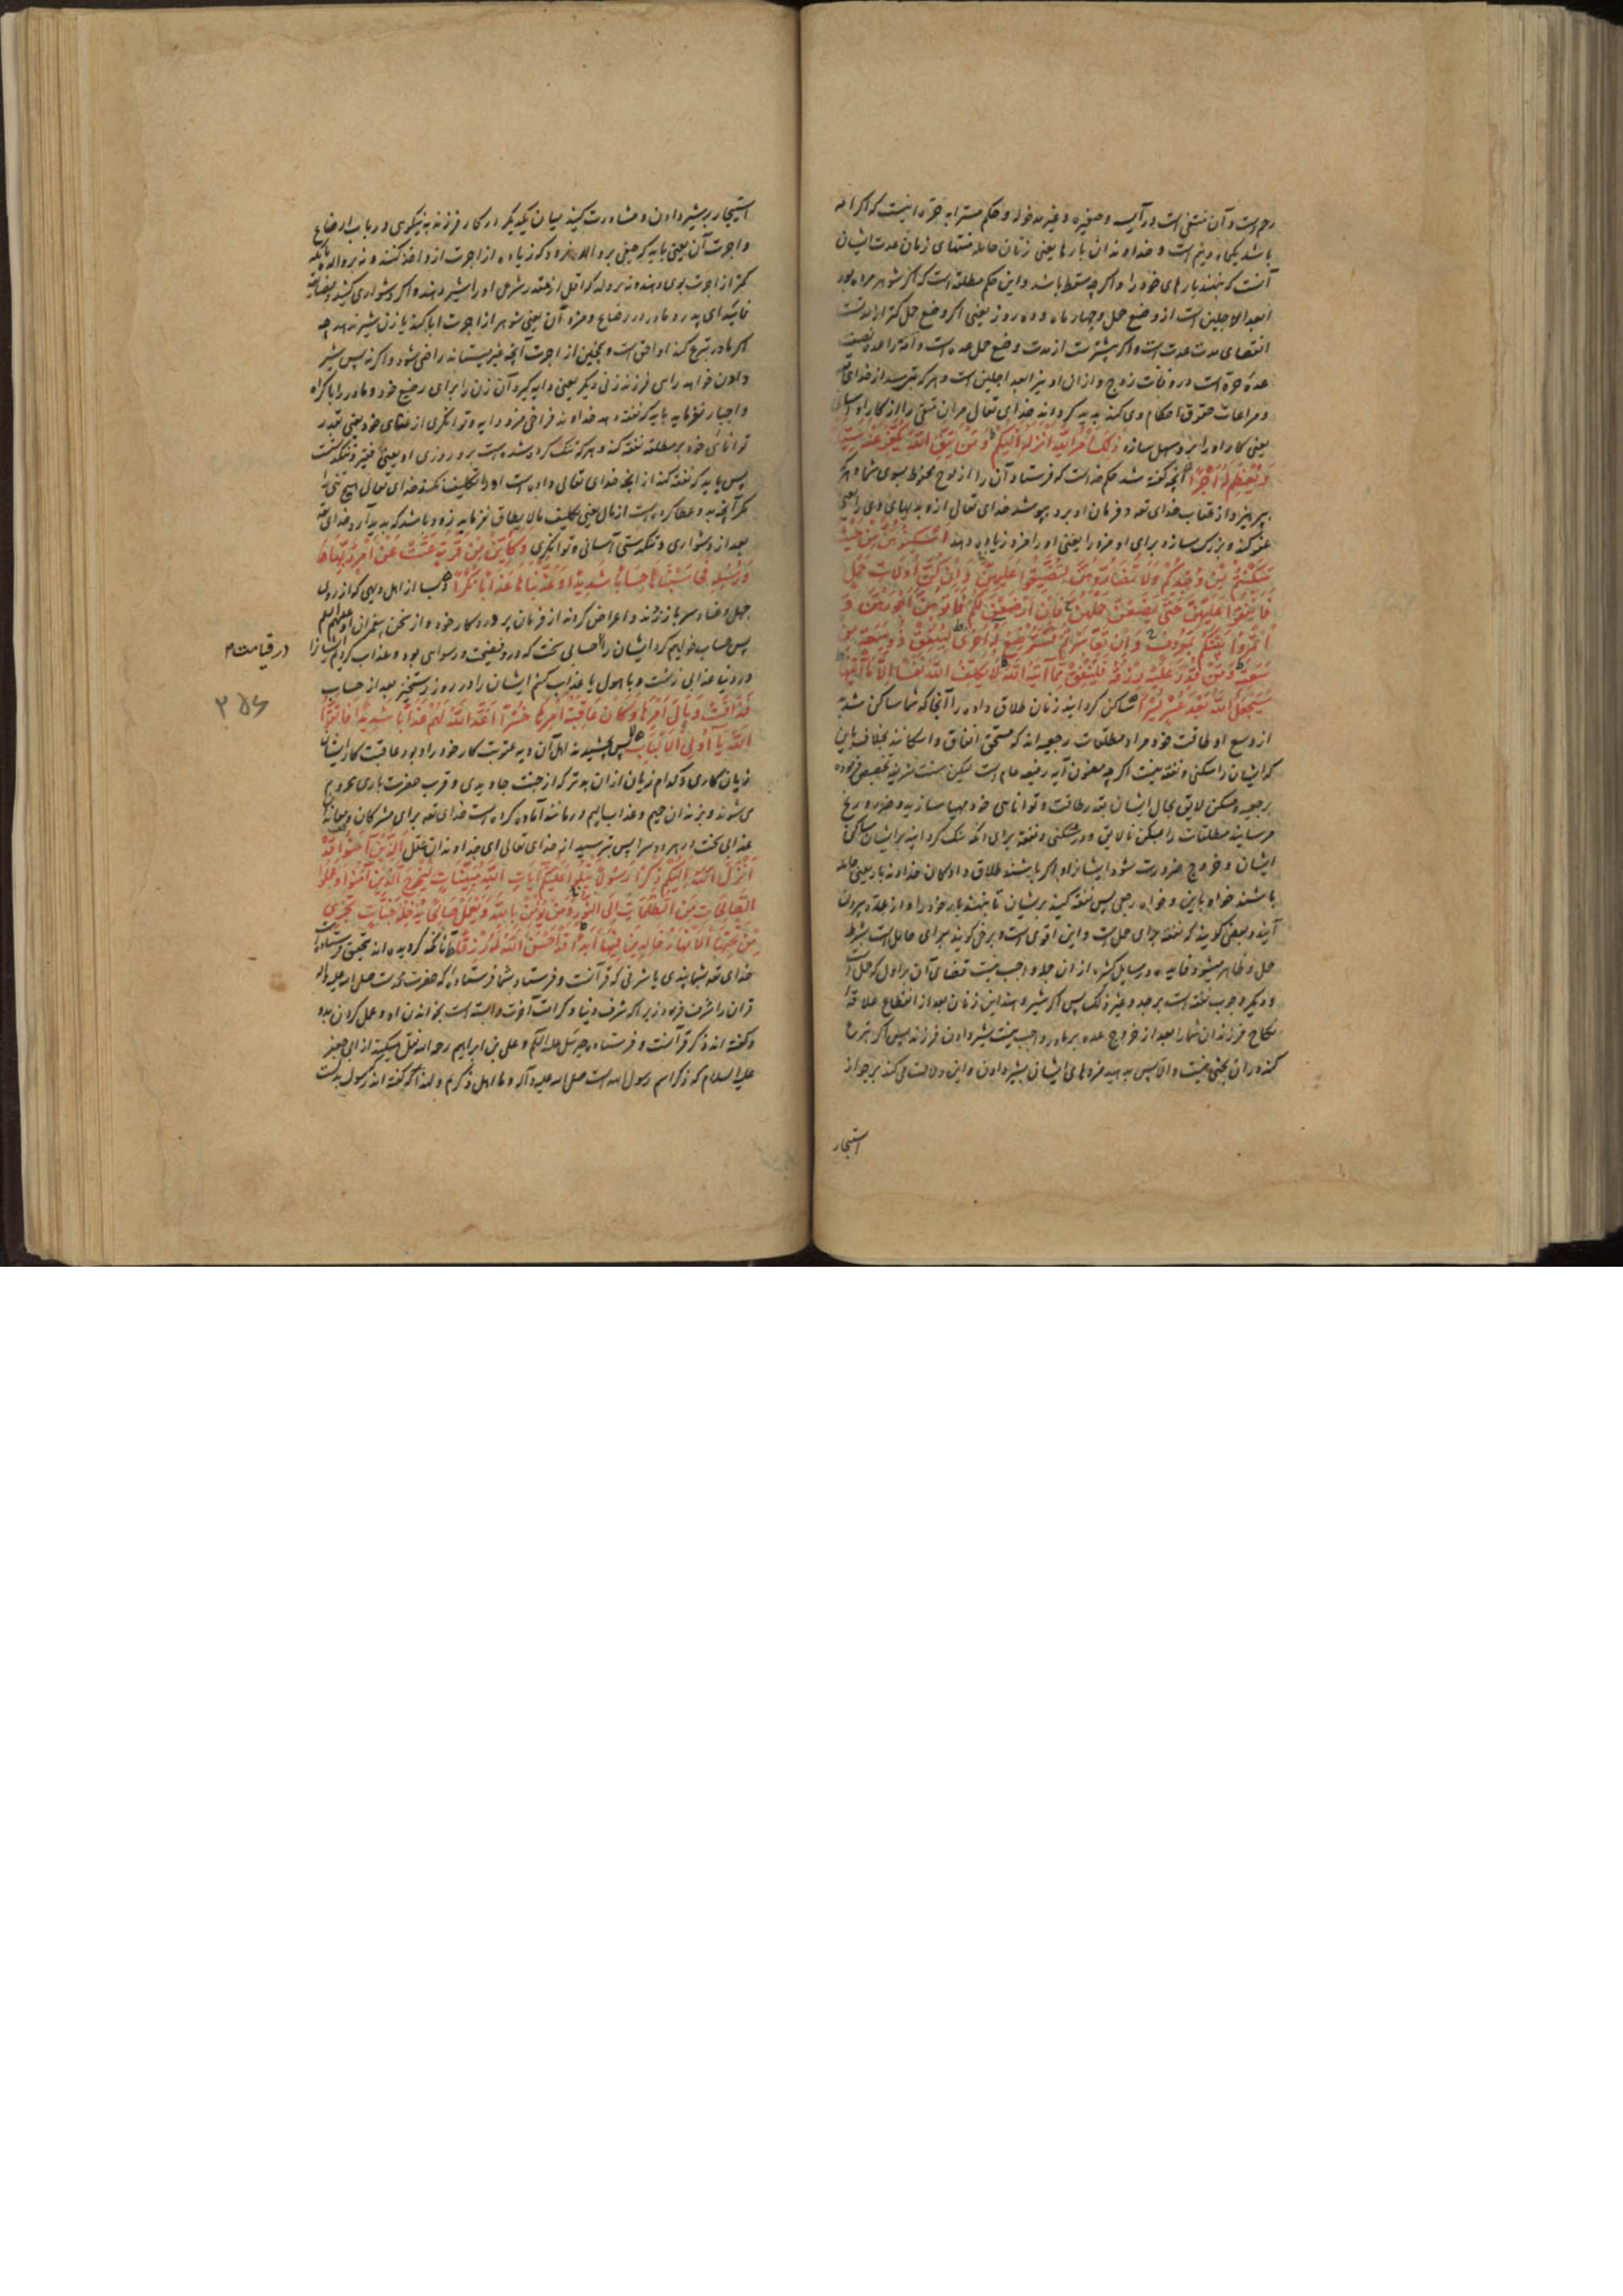 رحم است و آن منتفی است در آیسه و صغیره و غیر مدخوله و حکم مسترابه حره اینست که اگر امه
باشد یکماه و نیم است و خداوندان بارها یعنی زنان حامله منتهای زمان عدت ایشان
آنست که بنهند بارهای خود را و اگر چه سقط باشد و این حکم مطلقه است که اگر شوهر مرده بود
ابعد الاجلین است از وضع حمل و چهار ماه و ده روز یعنی اگر وضع حمل کمتر از مدتست
انقضای مدت عدت است و اگر بیشتر است از مدت وضع حمل عده است و امه را عده نصف
عده حره است در وفات زوج و از ان او نیز ابعد اجلین است و هر که بترسد از خدای تعه
و مراعات حقوق احکام وی کند پدید گرداند خدای تعالی مر آن متقی را از کار او آسانی
یعنی کار او را برو سهل سازد ذٰلِكَ أَمْرُ اللَّهِ أَنْزَلَهُ إِلَيْكُمْ وَمَنْ يَتَّقِ اللَّهَ يُكَفِّرْ عَنْهُ سَيِّئَاتِهِ
وَيُعْظِمْ لَهُ أَجْرًا آنچه گفته شد حکم خداست که فرستاد آن را از لوح محفوظ بسوی شما و هر که
بپرهیزد از عقاب خدای تعه و فرمان او برد بپوشد خدای تعالی ازو بدیهای وی را یعنی
عفو کند و بزرگ سازد برای او مزد را یعنی او را مزد زیاده دهد أَسْكِنُوهُنَّ مِنْ حَيْثُ
سَكَنْتُمْ مِنْ وُجْدِكُمْ وَلَا تُضَارُّوهُنَّ لِتُضَيِّقُوا عَلَيْهِنَّ وَإِنْ كُنَّ أُولَاتِ حَمْلٍ
فَأَنْفِقُوا عَلَيْهِنَّ حَتَّى يَضَعْنَ حَمْلَهُنَّ فَإِنْ أَرْضَعْنَ لَكُمْ فَآتُوهُنَّ أُجُورَهُنَّ وَ
أْتَمِرُوا بَيْنَكُمْ بِمَعْرُوفٍ وَإِنْ تَعَاسَرْتُمْ فَسَتُرْضِعُ لَهُ أُخْرَى لِيُنْفِقْ ذُو سَعَةٍ مِنْ
سَعَتِهِ وَمَنْ قُدِرَ عَلَيْهِ رِزْقُهُ فَلْيُنْفِقْ مِمَّا آتَاهُ اللَّهُ لَا يُكَلِّفُ اللَّهُ نَفْسًا إِلَّا مَا آتَاهَا
سَيَجْعَلُ اللَّهُ بَعْدَ عُسْرٍ يُسْرًا ساکن گردانید زنان طلاق داده را آنجا که شما ساکن شدید
از وسع و طاقت خود مراد مطلقات رجعیه اند که مستحق انفاق و اسکانند بخلاف باین
که ایشان را سکنی و نفقه نیست اگر چه مضمون آیه رفیعه عام است لیکن سنت شریفه تخصیص نموده
برجعیه و مسکن لایق بحال ایشان بقدر طاقت و توانایی خود مهیا سازید و ضرر و رنج
مرسانید مطلقات را بمسکن نالایق و در سکنی و نفقه برای آنکه تنگ گردانید بر ایشان مساکن
ایشان و خروج ضرورت شود ایشانرا و اگر باشند طلاق دادگان خداوند بار یعنی حامله
باشند خواه باین و خواه رجعی پس نفقه کنید بریشان تا بنهند بار خود را و از عده بیرون
آیند و بعضی گویند که نفقه برای حمل است و این اقوی است و برخی گویند برای حامل است بشرط
حمل و ظاهر میشود فایده در مسایل کثیره از ان جمله واجب نیست قضای آن بر اول که حمل است
و دیگر وجوب نفقه است بر جد و غیر ذلک پس اگر شیر دهند این زنان بعد از انقطاع علاقه
نکاح فرزندان شما را بعد از خروج عده بر مادر واجب نیست شیر دادن فرزند پس اگر تبرع
کنند در ان بحثی نیست و الا پس بدهید مزدهای ایشان بشیر دادن و این دلالت می کند بر جواز
استیجار
استیجار بر شیر دادن و مشاورت کنید میان یکدیگر در کار فرزند به نیکویی و در باب ارضاع
و اجرت آن یعنی باید که حیفی بر والد نرود که زیاده از اجرت ازو اخذ کنند و نه بر والده بآنکه
کمتر از اجرت بوی دهند و نه بر ولد که اقل از مقدر شرعی او را شیر دهند و اگر دشواری کنید و مضایقه
نمایید ای پدر و مادر در رضاع و مزد آن یعنی شوهر از اجرت ابا کند یا زن شیر ندهد چه
اگر مادر تبرع کند او احق است و همچنین از اجرت آنچه غیر بستاند راضی شود و اگر نه پس شیر
دادن خواهد مر این فرزند زنی دیگر یعنی دایه گیرد آن زن را برای رضیع خود و مادر را باکراه
و اجبار نفرماید باید که نفقه دهد خداوند فراخی مزد دایه و توانگری از غنای خود یعنی بقدر
توانائی خود بر مطلقه نفقه کند و هر که تنگ کرده شده است برو روزی او یعنی فقیر و تنگدست
پس باید که نفقه کند از آنچه خدای تعالی داده است او را تکلیف نکند خدای تعالی هیچ تنی را
مگر آنچه بدو عطا کرده است از مال یعنی تکلیف مالایطاق نفرماید زود باشد که پدید آرد خدای تعه
بعد از دشواری و تنگدستی آسانی و توانگری وَكَأَيِّنْ مِنْ قَرْيَةٍ عَتَتْ عَنْ أَمْرِ رَبِّهَا
وَرُسُلِهِ فَحَاسَبْنَاهَا حِسَابًا شَدِيدًا وَعَذَّبْنَاهَا عَذَابًا نُكْرًا و بسا از اهل دیهی که از روی
جهل و عناد سر باز زدند و اعراض کردند از فرمان پروردگار خود و از سخن پیغمبران او علیهم السلم
پس حساب خواهیم کرد ایشان را حسابی سخت که درو فضیحت و رسوایی بود و عذاب کردیم ایشانرا
در قیامت م
در دنیا عذابی زشت و با هول یا عذاب کنم ایشان را در روز رستخیز بعد از حساب
۳۵۶
فَذَاقَتْ وَبَالَ أَمْرِهَا وَكَانَ عَاقِبَةُ أَمْرِهَا خُسْرًا أَعَدَّ اللَّهُ لَهُمْ عَذَابًا شَدِيدًا فَاتَّقُوا
اللَّهَ يَا أُولِي الْأَلْبَابِ پس چشیدند اهل آن دیه عقوبت کار خود را و بود عاقبت کار ایشان
زیان کاری و کدام زیان از ان بدتر که از جنت جاویدی و قرب حضرت باری محروم
می شوند و بزندان جحیم و عذاب الیم درمانند آماده کرده است خدای تعه برای مشرکان و معاندان
عذابی سخت در هر دو سرا پس بترسید از خدای تعالی ای خداوندان عقل الَّذِينَ آمَنُوا قَدْ
أَنْزَلَ اللَّهُ إِلَيْكُمْ ذِكْرًا رَسُولًا يَتْلُو عَلَيْكُمْ آيَاتِ اللَّهِ مُبَيِّنَاتٍ لِيُخْرِجَ الَّذِينَ آمَنُوا وَعَمِلُوا
الصَّالِحَاتِ مِنَ الظُّلُمَاتِ إِلَى النُّورِ وَمَنْ يُؤْمِنْ بِاللَّهِ وَيَعْمَلْ صَالِحًا يُدْخِلْهُ جَنَّاتٍ تَجْرِي
مِنْ تَحْتِهَا الْأَنْهَارُ خَالِدِينَ فِيهَا أَبَدًا قَدْ أَحْسَنَ اللَّهُ لَهُ رِزْقًا آنانکه گرویده اند بتحقیق فرستاده است
خدای تعه بشما پندی یا شرفی که قرآنست و فرستاد بشما فرستاده که حضرت محمد است صلی الله علیه و آله
قران را شرف فرمود زیرا که شرف دنیا و کرامت آخرت وابسته است بخواندن او و عمل کردن بدو
و گفته اند ذکر قرآنست و فرستاده جبرئیل علیه السلم و علی بن ابراهیم رحمه الله نقل میکند از ابی جعفر
علیه السلام که ذکر اسم رسول الله است صلی الله علیه و آله و ما اهل ذکریم و لهذا گفته اند که رسول بدلست